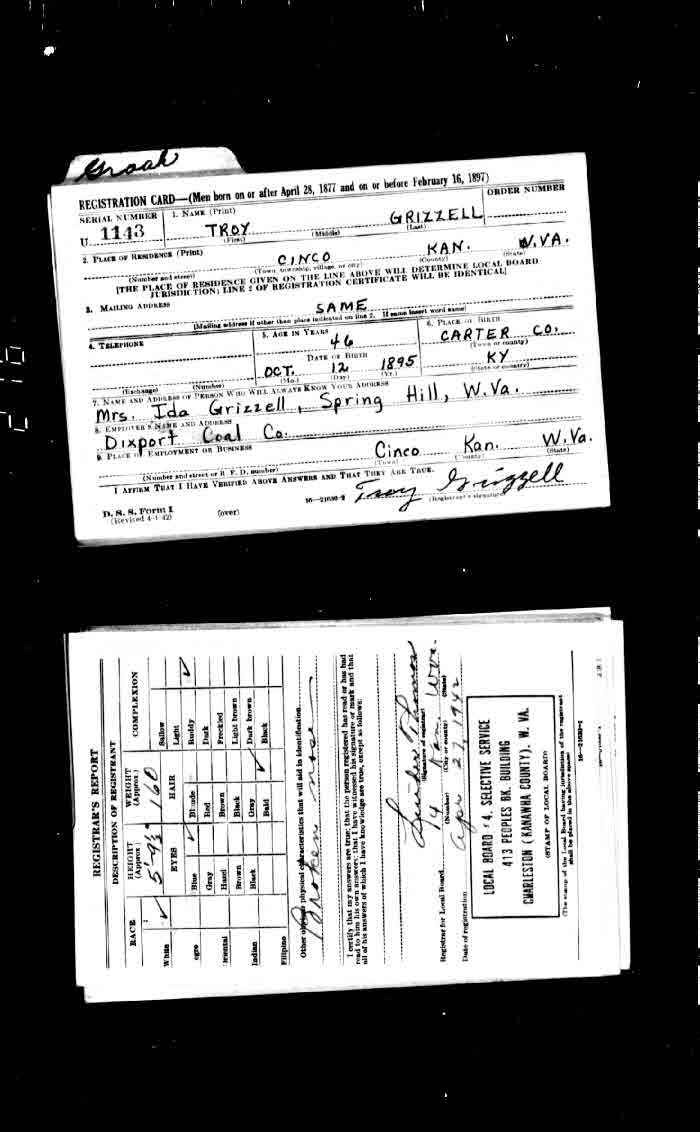 Groah
REGISTRATION CARD—(Men born on or after April 28, 1877 and on or before February 16, 1897)
SERIAL NUMBER 1. NAME (Print) ORDER NUMBER
U 1143 TROY GRIZZELL
(First) (Middle) (Last)
2. PLACE OF RESIDENCE (Print)
CINCO KAN. W.VA.
(Number and street) (Town, township, village, or city) (County) (State)
[THE PLACE OF RESIDENCE GIVEN ON THE LINE ABOVE WILL DETERMINE LOCAL BOARD
JURISDICTION; LINE 2 OF REGISTRATION CERTIFICATE WILL BE IDENTICAL]
3. MAILING ADDRESS
SAME
[Mailing address if other than place indicated on line 2. If same insert word same]
4. TELEPHONE 5. AGE IN YEARS 6. PLACE OF BIRTH
46 CARTER CO.
DATE OF BIRTH (Town or county)
OCT. 12 1895 KY
(Exchange) (Number) (Mo.) (Day) (Yr.) (State or country)
7. NAME AND ADDRESS OF PERSON WHO WILL ALWAYS KNOW YOUR ADDRESS
Mrs. Ida Grizzell, Spring Hill, W.Va.
8. EMPLOYER'S NAME AND ADDRESS
Dixport Coal Co.
9. PLACE OF EMPLOYMENT OR BUSINESS
Cinco Kan. W.Va.
(Number and street or R. F. D. number) (Town) (County) (State)
I AFFIRM THAT I HAVE VERIFIED ABOVE ANSWERS AND THAT THEY ARE TRUE.
Troy Grizzell
D. S. S. Form 1
(Revised 4-1-42) (over) 16—21630-2 (Registrant's signature)
REGISTRAR'S REPORT
DESCRIPTION OF REGISTRANT
RACE HEIGHT (Approx.) WEIGHT (Approx.) COMPLEXION
5'-9½" 160
EYES HAIR
White Blue Blonde Sallow
Light
egro Gray Red Ruddy
riental Hazel Brown Dark
Freckled
Indian Brown Black Light brown
Filipino Black Gray Dark brown
Bald Black
Other obvious physical characteristics that will aid in identification
Broken nose
I certify that my answers are true; that the person registered has read or has had
read to him his own answers; that I have witnessed his signature or mark and that
all of his answers of which I have knowledge are true, except as follows:
(Signature of registrar)
Registrar for Local Board 14 Kan. W.Va.
(Number) (City or county) (State)
Date of registration Apr 27, 1942
LOCAL BOARD 14, SELECTIVE SERVICE
413 PEOPLES BK. BUILDING
CHARLESTON (KANAWHA COUNTY). W. VA.
(STAMP OF LOCAL BOARD)
(The stamp of the Local Board having jurisdiction of the registrant
shall be placed in the above space)
16—21630-1